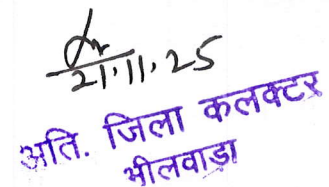 21.11.25
अति. जिला कलक्टर
भीलवाड़ा